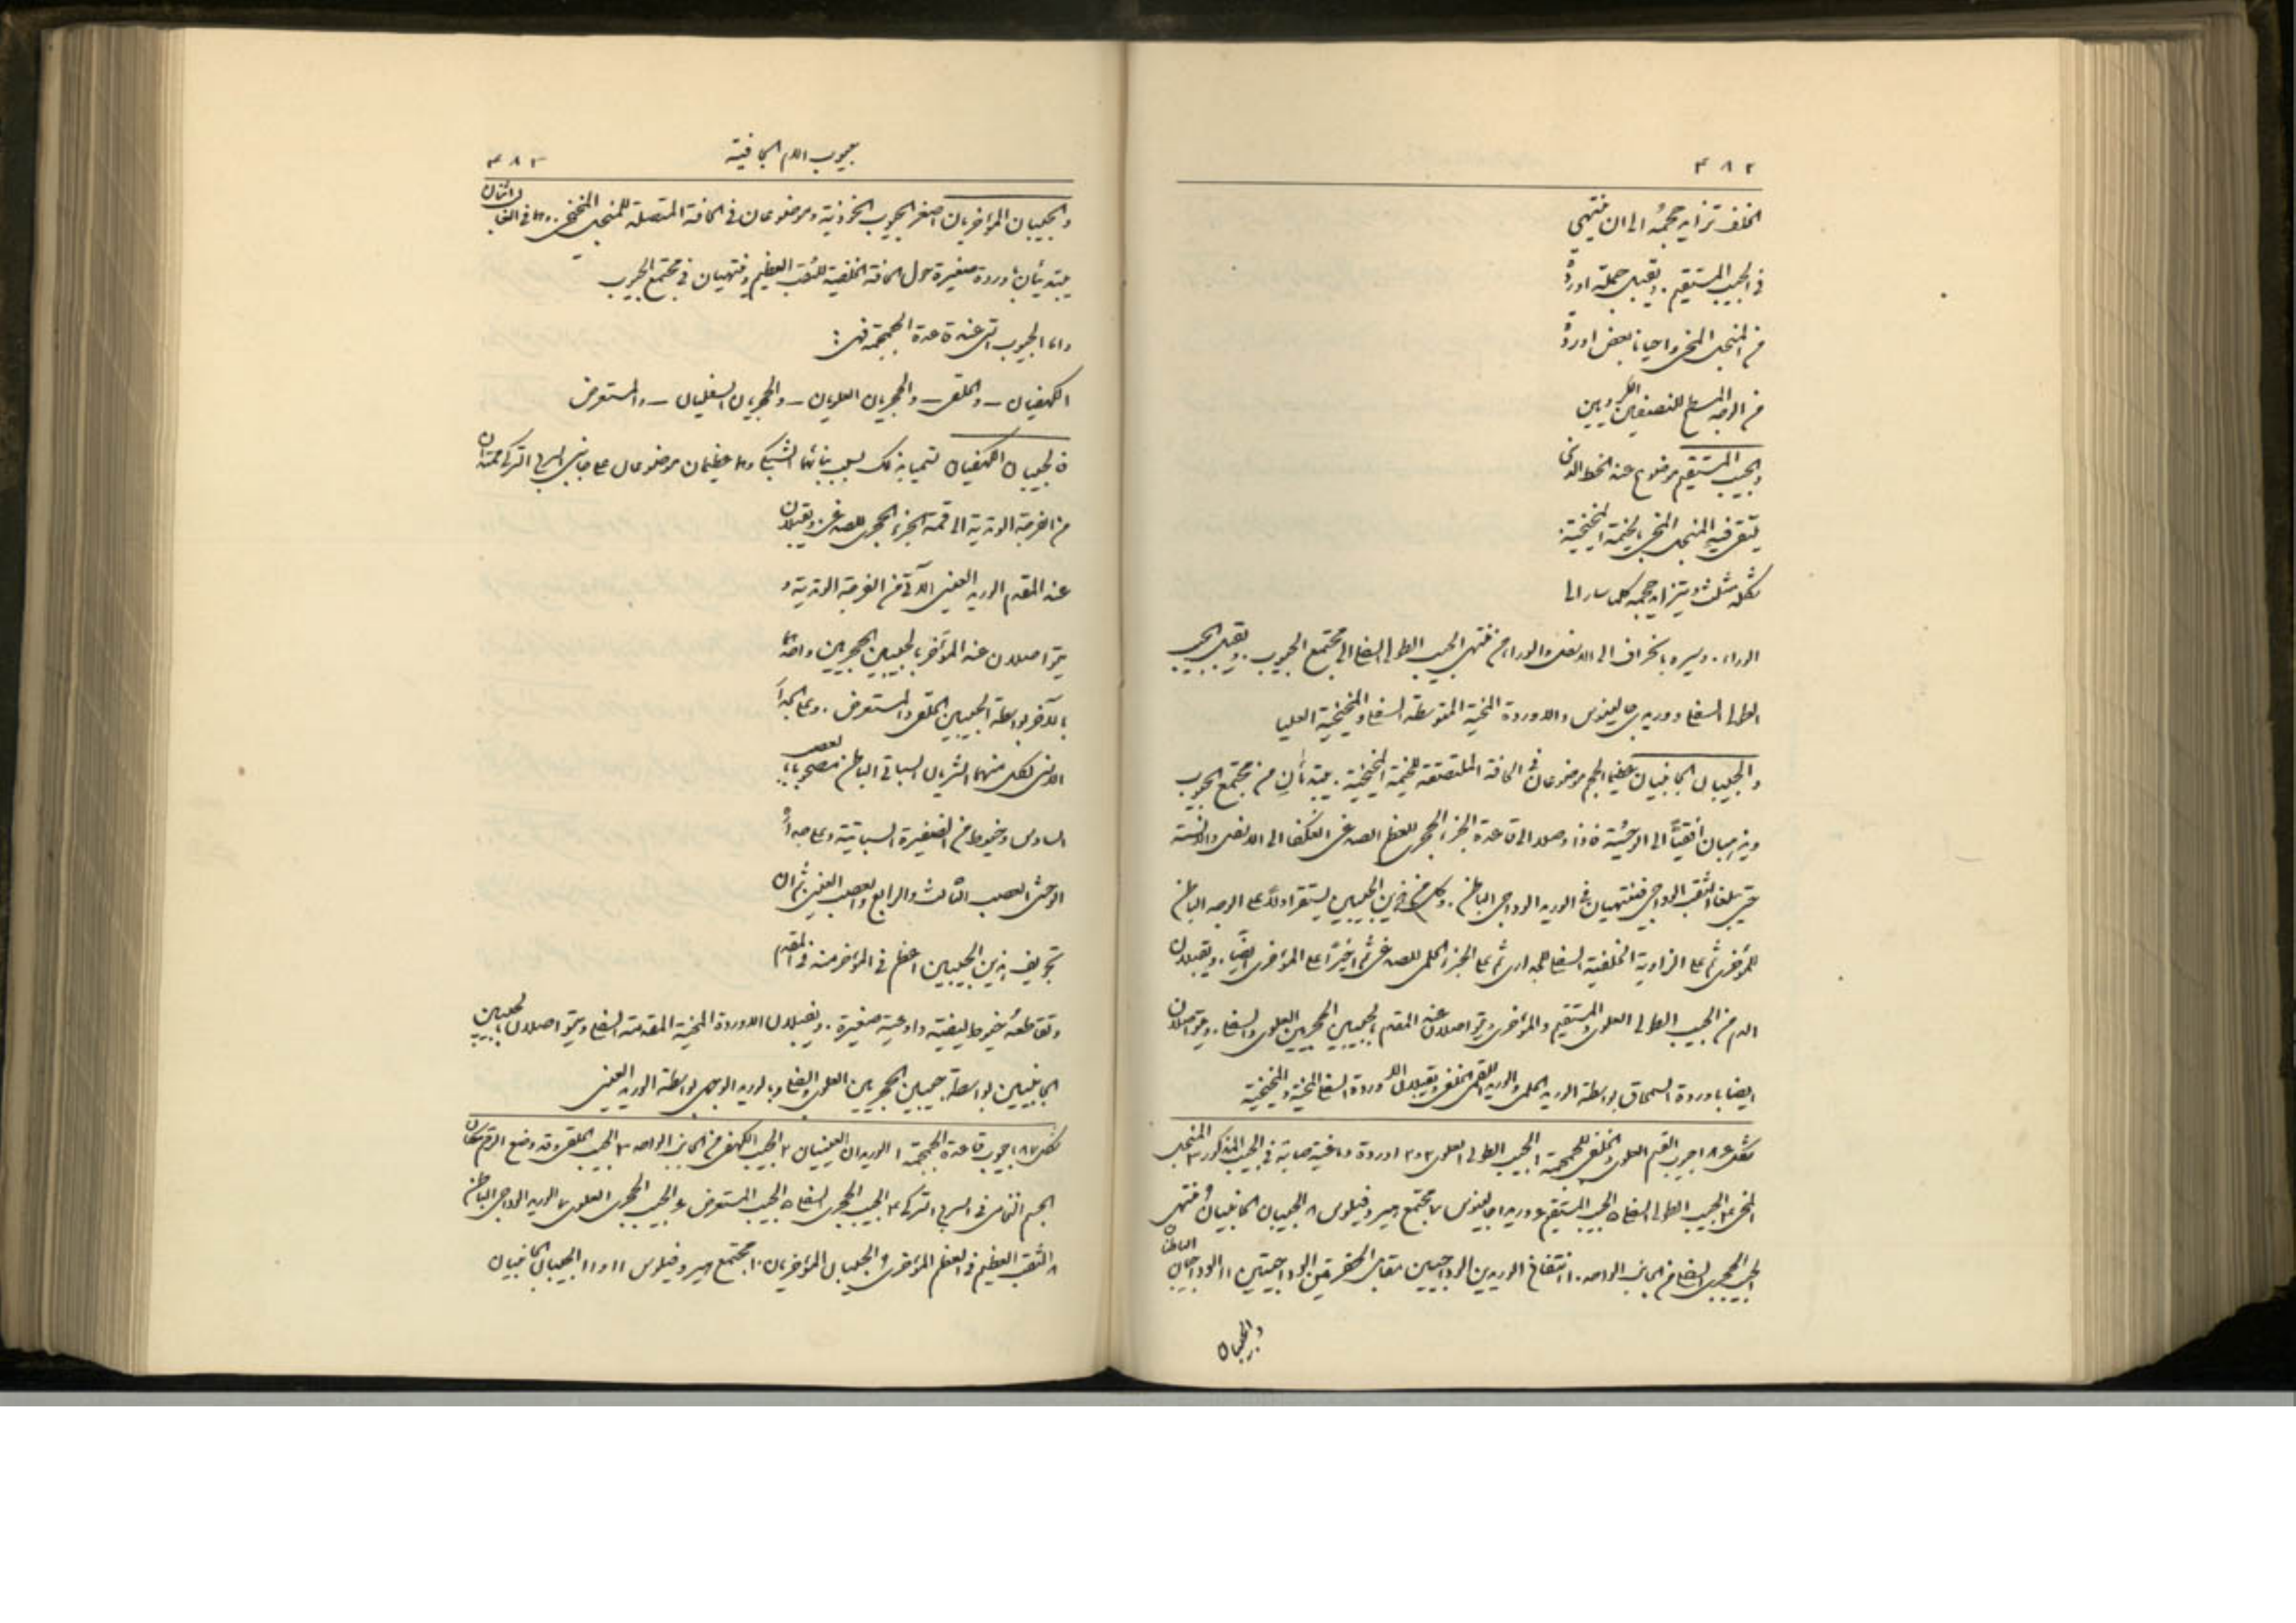 ٤٨٢
الخلف تزايد حجمه الى ان ينتهي
في الجيب المستقيم . ويقبل جملة اوردة
من المنجل المخي واحيانا بعض اوردة
من الوجه المسطح للنصفين الكرويين
والجيب المستقيم موضوع عند الخط الذي
يلتقي فيه المنجل المخي بالخيمة المخيخية .
شكله مثلث ويتزايد حجمه كلما سار الى
الوراء . وسيره بانحراف الى الاسفل والوراء من منتهى الجيب الطولي السفلي الى مجتمع الجيوب . ويقبل الجيب
الطولي السفلي ووريدي جالينوس والاوردة المخية المتوسطة السفلى والمخيخية العليا
والجيبان الجانبيان عظيما الحجم موضوعان في الحافة الملتصقة للخيمة المخيخية . يبتدئان من مجتمع الجيوب
ويذهبان افقيًا الى الوحشية فاذا وصلا الى قاعدة الجزء الحجري للعظم الصدغي انعكفا الى الاسفل والانسية
حتى يبلغا الثقب الوداجي فينتهيان في الوريد الوداجي الباطن . وكل من هذين الجيبين يستقر اولًا على الوجه الباطن
للمؤخري ثم على الزاوية الخلفية السفلى للجداري ثم على الجزء الحلمي للصدغي ثم اخيرًا على المؤخري ايضًا . ويقبلان
الدم من الجيب الطولي العلوي والمستقيم والمؤخري ويتواصلان عند المقدم بالجيبين الحجريين العلوي والسفلي . ويتواصلان
ايضا باوردة السمحاق بواسطة الوريد الحلمي والوريد اللقمي الخلفي ويقبلان الاوردة السفلى المخية والمخيخية
شكل ١٨٦ جيوب القسم العلوي والخلفي للجمجمة ١ الجيب الطولي العلوي ٢ و٢ اوردة دماغية صابة في الجيب المذكور ٣ المنجل
المخي ٤ الجيب الطولي السفلي ٥ الجيب المستقيم ٦ وريدا جالينوس ٧ مجتمع هيروفيلوس ٨ الجيبان الجانبيان ٩ منتهى
الجيب الحجري السفلي من الجانب الواحد ١٠ انتفاخ الوريدين الوداجيين مقابل الحفرتين الوداجيتين ١١ الوداجيان الباطنان
والجيبان
جيوب الام الجافية
٤٨٣
والجيبان المؤخريان اصغر الجيوب الخوذية وموضوعان في الحافة المتصلة للمنجل المخيخي . وهما في الغالب اثنان
يبتدئان باوردة صغيرة حول الحافة الخلفية للثقب العظيم وينتهيان في مجتمع الجيوب
واما الجيوب التي عند قاعدة الجمجمة فهي :
الكهفيان – والحلقي – والحجريان العلويان – والحجريان السفليان – والمستعرض
فالجيبان الكهفيان سميا بذلك بسبب بنائهما الشبكي وهما عظيمان موضوعان على جانبي السرج التركي ممتدان
من الفرجة الوتدية الى قمة الجزء الحجري للصدغي . ويقبلان
عند المقدم الوريد العيني الآتي من الفرجة الوتدية و
يتواصلان عند المؤخر بالجيبين الحجريين واحدهما
بالآخر بواسطة الجيبين الحلقي والمستعرض . وعلى الجدار
الانسي لكل منهما الشريان السباتي الباطن مصحوبا بالعصب
السادس وخيوط من الضفيرة السباتية وعلى جداره
الوحشي العصب الثالث والرابع والعصب العيني ثم ان
تجويف هذين الجيبين اعظم في المؤخر منه في المقدم
وتقاطعه خيوط ليفية واوعية صغيرة . ويقبلان الاوردة المخية المقدمة السفلى ويتواصلان بالجيبين
الجانبيين بواسطة جيبين الحجريين العلوي والسفلي وبالوريد الوجهي بواسطة الوريد العيني
شكل ١٨٧ جيوب قاعدة الجمجمة ١ الوريدان العينيان ٢ الجيب الكهفي من الجانب الواحد ٣ الجيب الحلقي وقد وضع الرقم مكان
الجسم النخامي في السرج التركي ٤ الجيب الحجري السفلي ٥ الجيب المستعرض ٦ الجيب الحجري العلوي ٧ الوريد الوداجي الباطن
٨ الثقب العظيم في العظم المؤخري ٩ الجيبان المؤخريان ١٠ مجتمع هيروفيلوس ١١ و ١١ الجيبان الجانبيان